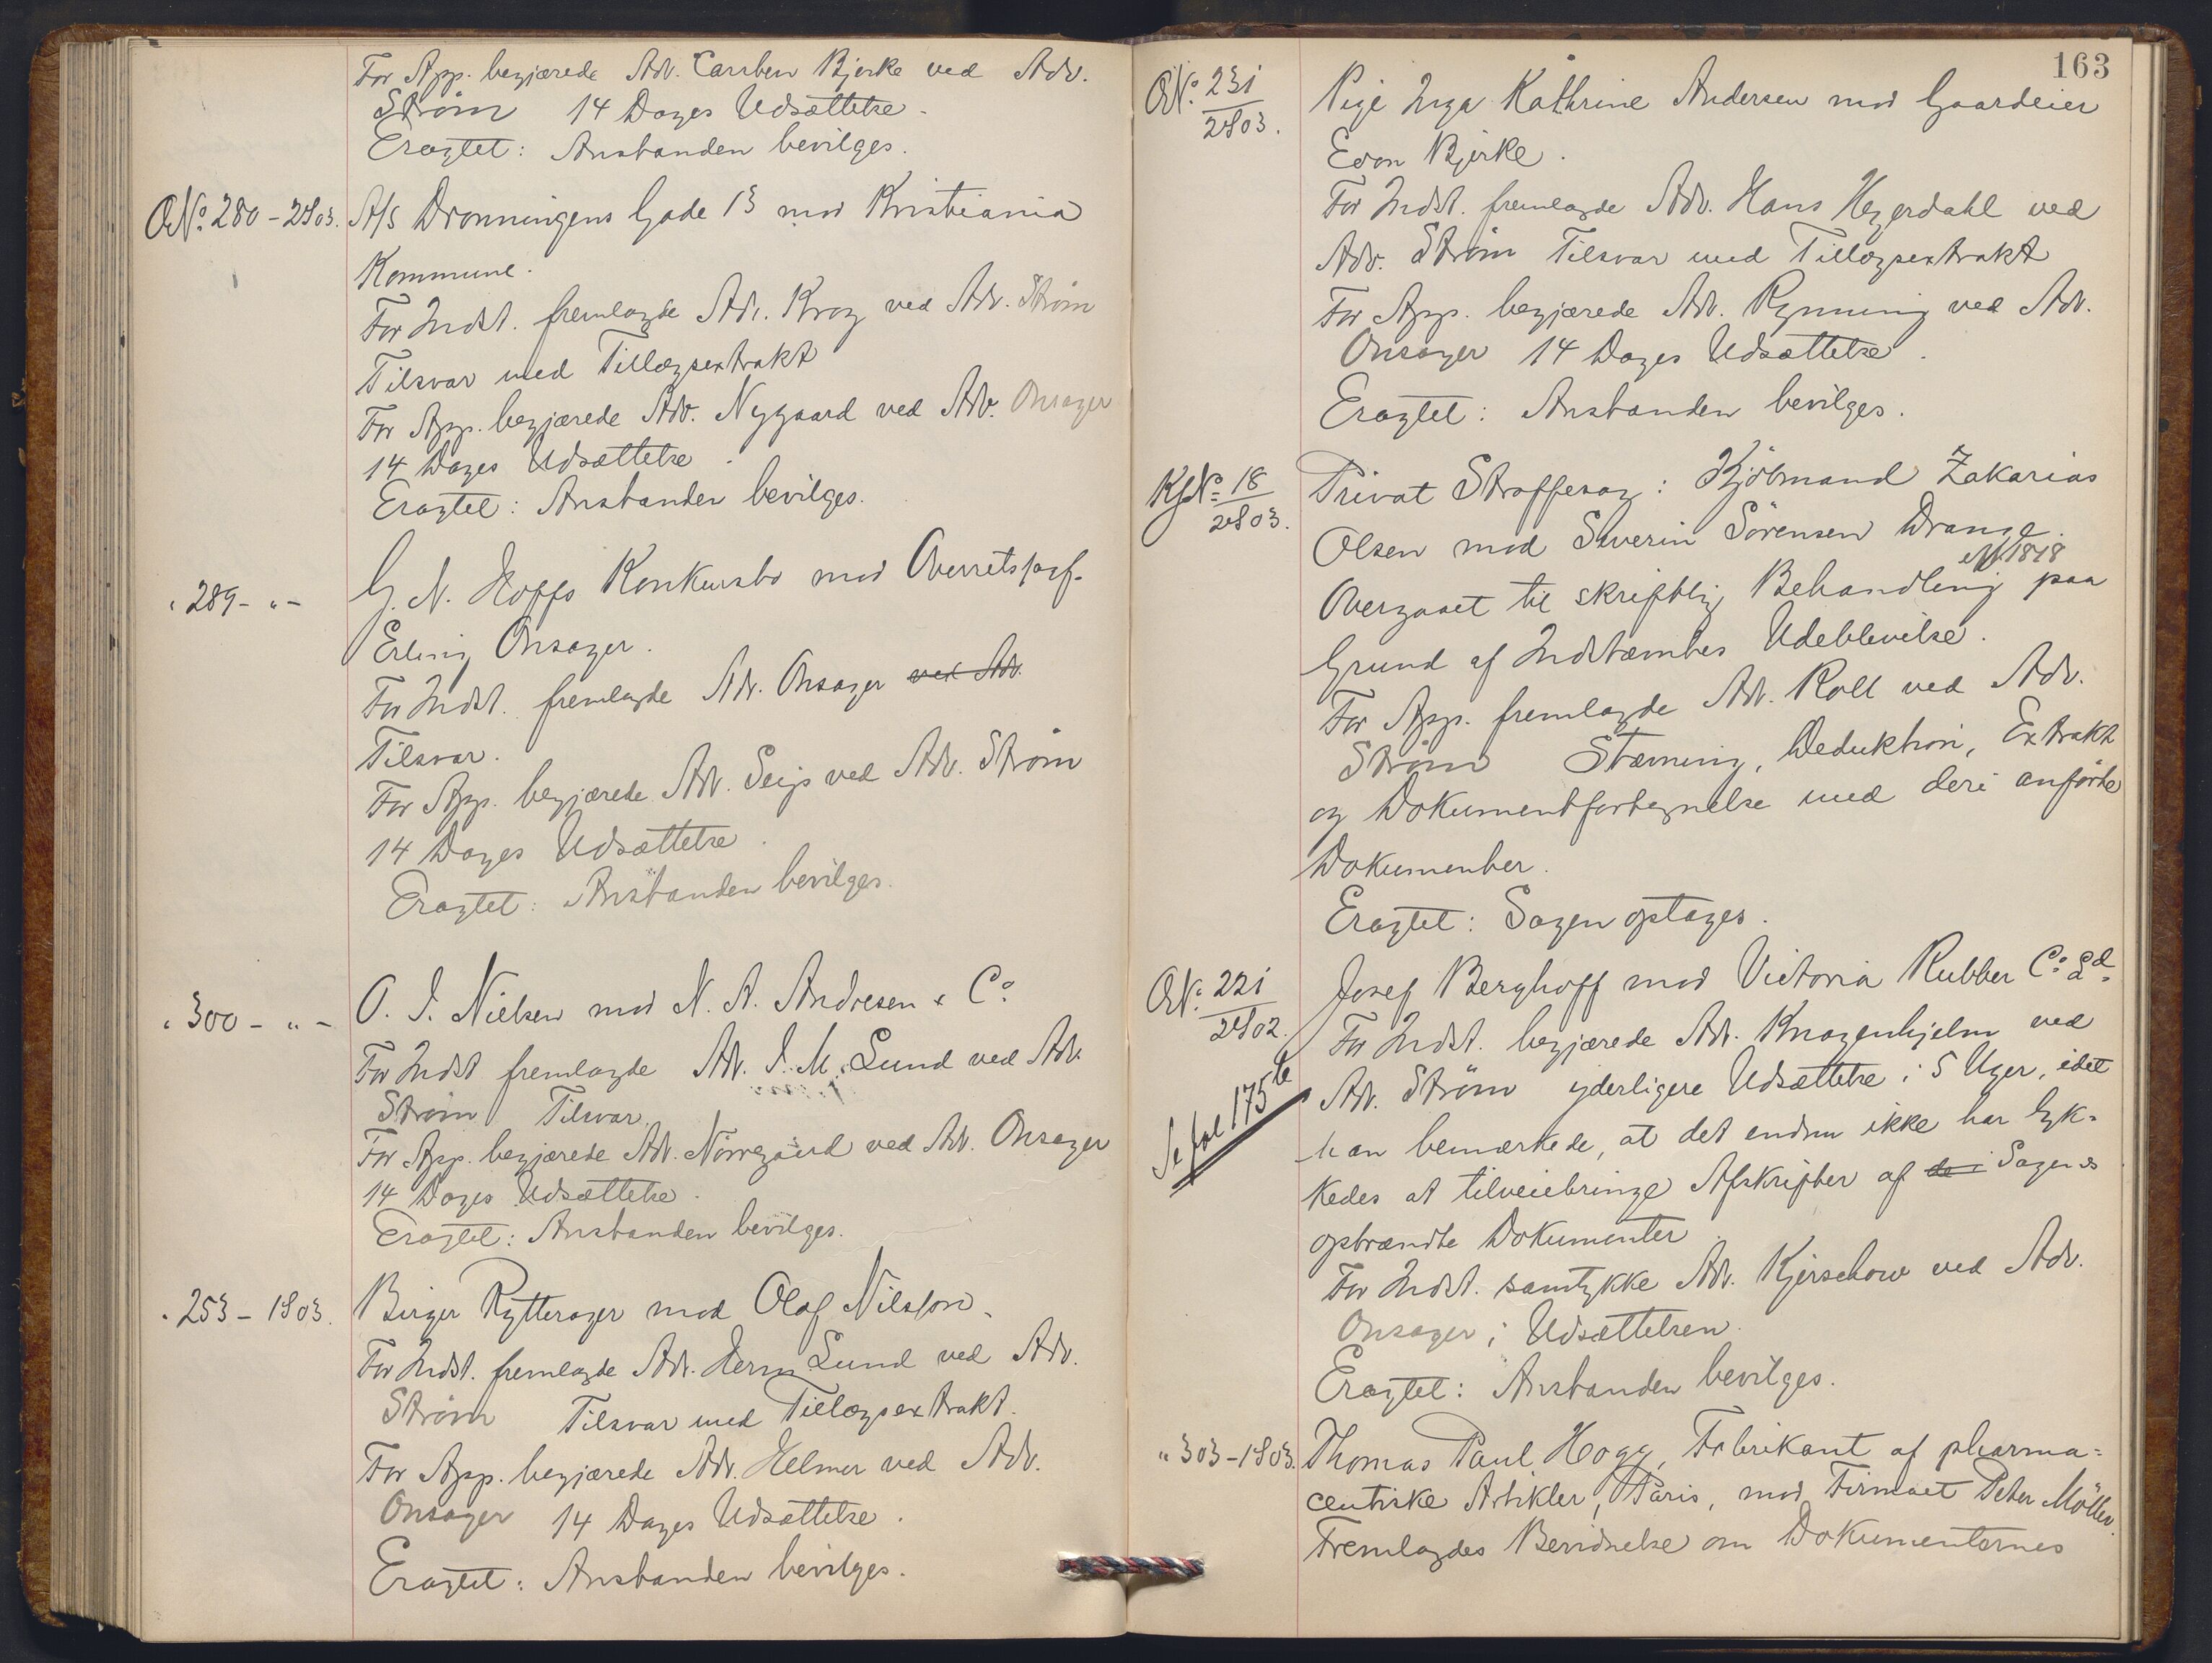 For App. begjærede Adv. Carsten Bjerke ved Adv.
Strøm 14 Dages Udsættelse.
Eragtet: Anstanden bevilges.
ONo. 280 - 2/1903. A/S Dronningens Gade 13 mod Kristiania
Kommune.
For Indst. fremlagde Adv. Krag ved Adv. Strøm
Tilsvar med Tillægsextrakt
For App. begjærede Adv. Nygaard ved Adv. Onsager
14 Dages Udsættelse.
Eragtet: Anstanden bevilges.
" 289 - " - G. N. Hoffs Konkursbo mod Overretssagf.
Erling Onsager.
For Indst. fremlagde Adv. Onsager ved Adv.
Tilsvar.
For App. begjærede Adv. Seip ved Adv. Strøm
14 Dages Udsættelse.
Eragtet: Anstanden bevilges.
" 300 - " - O. J. Nielsen mod N. A. Andresen & Co.
For Indst fremlagde Adv. J. M. Lund ved Adv.
Strøm Tilsvar.
For App. begjærede Adv. Nørregaard ved Adv. Onsager
14 Dages Udsættelse.
Eragtet: Anstanden bevilges.
" 253 - 1903. Birger Rytterager mod Olaf Nilsson.
For Indst. fremlagde Adv. Herm. Lund ved Adv.
Strøm Tilsvar med Tillægsextrakt.
For App. begjærede Adv. Helmer ved Adv.
Onsager 14 Dages Udsættelse.
Eragtet: Anstanden bevilges.
163
ONo. 231/2/1903. Pige Inga Kathrine Andersen mod Gaardeier
Even Bjerke.
For Indst. fremlagde Adv. Hans Heyerdahl ved
Adv. Strøm Tilsvar med Tillægsextrakt
For App. begjærede Adv. Rynning ved Adv.
Onsager 14 Dages Udsættelse.
Eragtet: Anstanden bevilges.
No. 18/2/1903. Privat Straffesag: Kjøbmand Zakarias
Olsen mod Severin Sørensen Drange.
Overgaaet til skriftlig Behandling paa
Grund af Indstævntes Udeblivelse.
For App. fremlagde Adv. Roll ved Adv.
Strøm Stævning, Deduktion, Extrakt
og Dokumentfortegnelse med deri anførte
Dokumenter.
Eragtet: Sagen optages.
ONo. 221/2/1902. Josef Berghoff mod Victoria Rubber Co. Ld.
For Indst. begjærede Adv. Knagenhjelm ved
Adv. Strøm yderligere Udsættelse i 5 Uger, idet
Se fol 175
han bemærkede, at det endnu ikke har lyk-
kedes at tilveiebringe Afskrifter af de i Sagens
opbrændte Dokumenter.
For Indst. samtykke Adv. Kjerschow ved Adv.
Onsager i Udsættelsen.
Eragtet: Anstanden bevilges.
" 303 - 1903. Thomas Paul Hogg, Fabrikant af pharma-
ceutiske Artikler, Paris, mod Firmaet Peter Möller.
Fremlagdes Bevidnelse om Dokumenternes